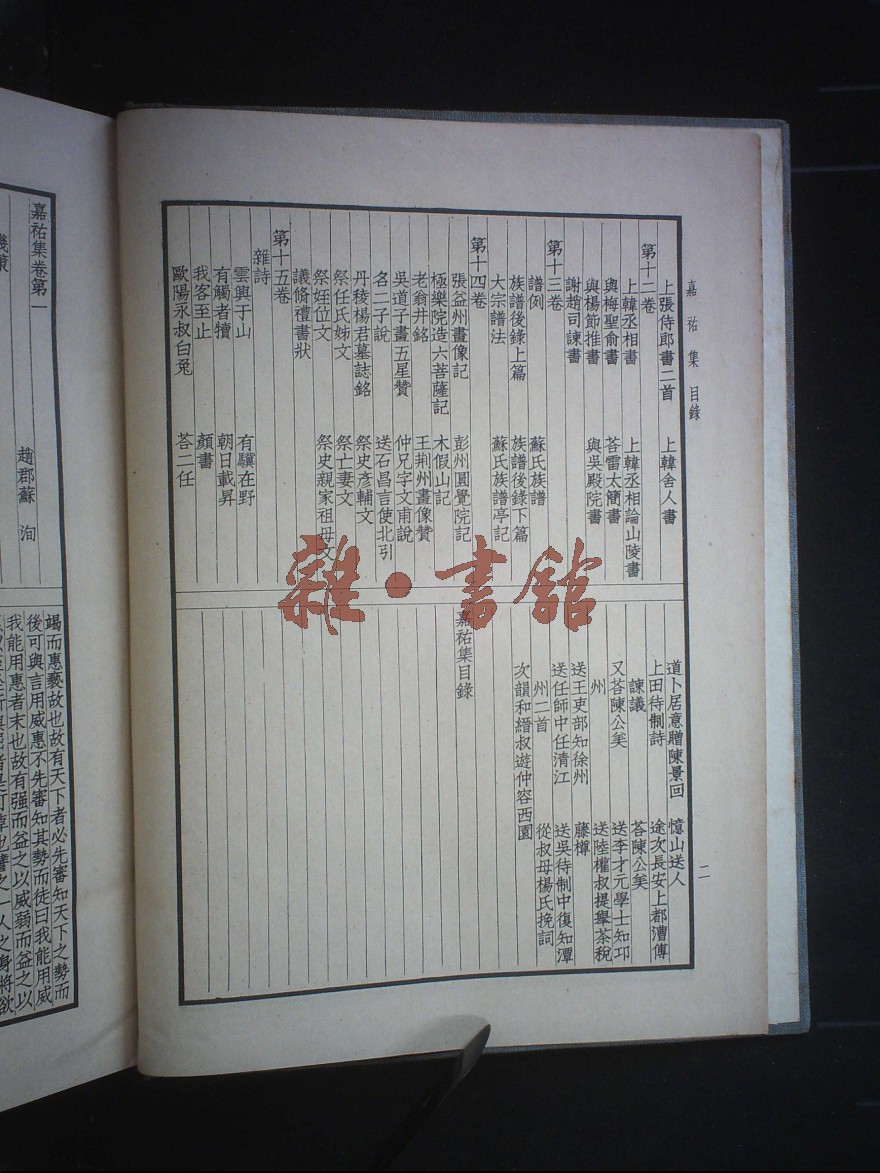 嘉祐集 目錄
上張侍郎書二首 上韓舍人書
第十二卷
上韓丞相書 上韓丞相論山陵書
與梅聖俞書 荅雷太簡書
與楊節推書 與吳殿院書
謝趙司諫書
第十三卷
譜例 蘇氏族譜
族譜後錄上篇 族譜後錄下篇
大宗譜法 蘇氏族譜亭記
第十四卷
張益州畫像記 彭州圓覺院記
極樂院造六菩薩記 木假山記
老翁井銘 王荆州畫像贊
吳道子畫五星贊 仲兄字文甫說
名二子說 送石昌言使北引
丹稜楊君墓誌銘 祭史彥輔文
祭任氏姊文 祭亡妻文
祭姪位文 祭史親家祖母文
議脩禮書狀
第十五卷
雜詩
雲興于山 有驥在野
有觸者犢 朝日載昇
我客至止 顏書
歐陽永叔白兔 荅二任
道卜居意贈陳景回 憶山送人
上田待制詩 途次長安上都漕傅
諫議 荅陳公美
又荅陳公美 送李才元學士知邛
州 送陸權叔提舉茶稅
送王吏部知徐州 藤樽
送任師中任清江 送吳待制中復知潭
州二首 從叔母楊氏挽詞
次韻和縉叔遊仲容西園
嘉祐集目錄
二
雜·書館
嘉祐集卷第一
趙郡蘇 洵
竭而惠褻故也故有天下者必先審知天下之勢而
後可與言用威惠不先審知其勢而徒曰我能用威
我能用惠者末也故有强而益之以威弱而益之以